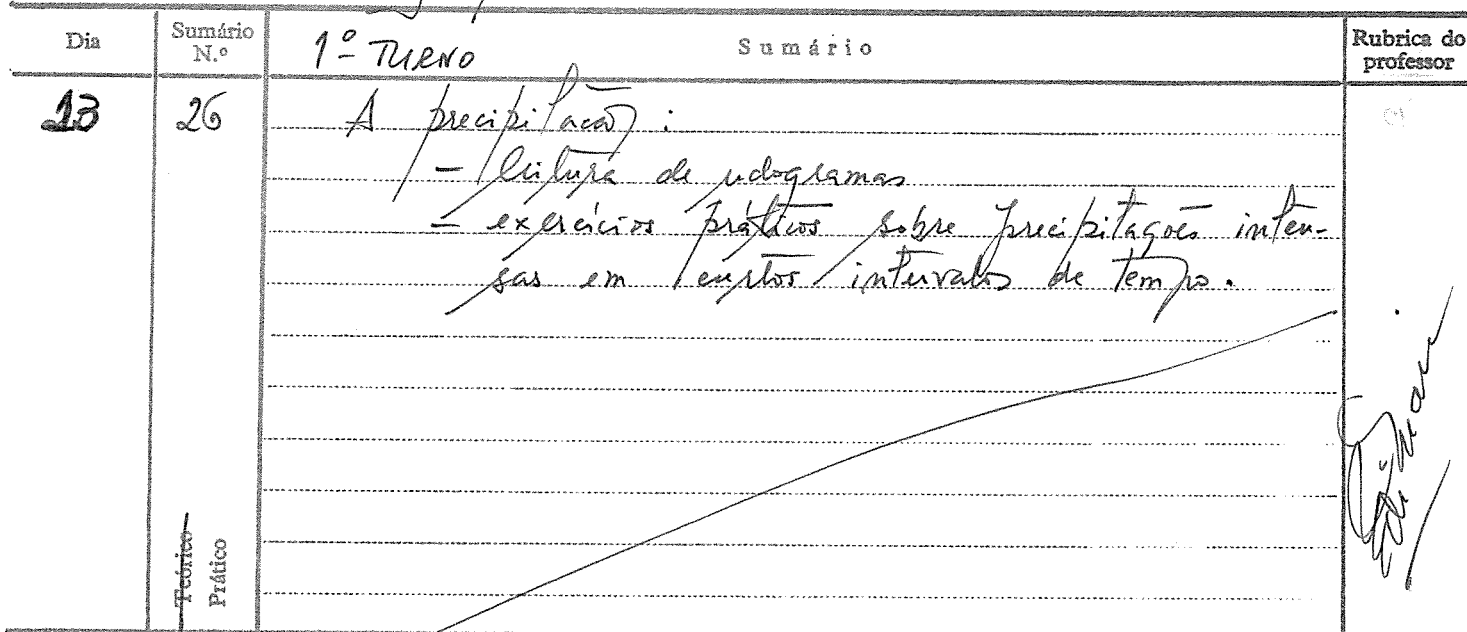 Dia
Sumário N.º
1º TURNO
Sumário
Rubrica do professor
13
26
A precipitação :
- leitura de udogramas
- exercícios práticos sobre precipitações inten-
sas em curtos intervalos de tempo.
Teórico
Prático